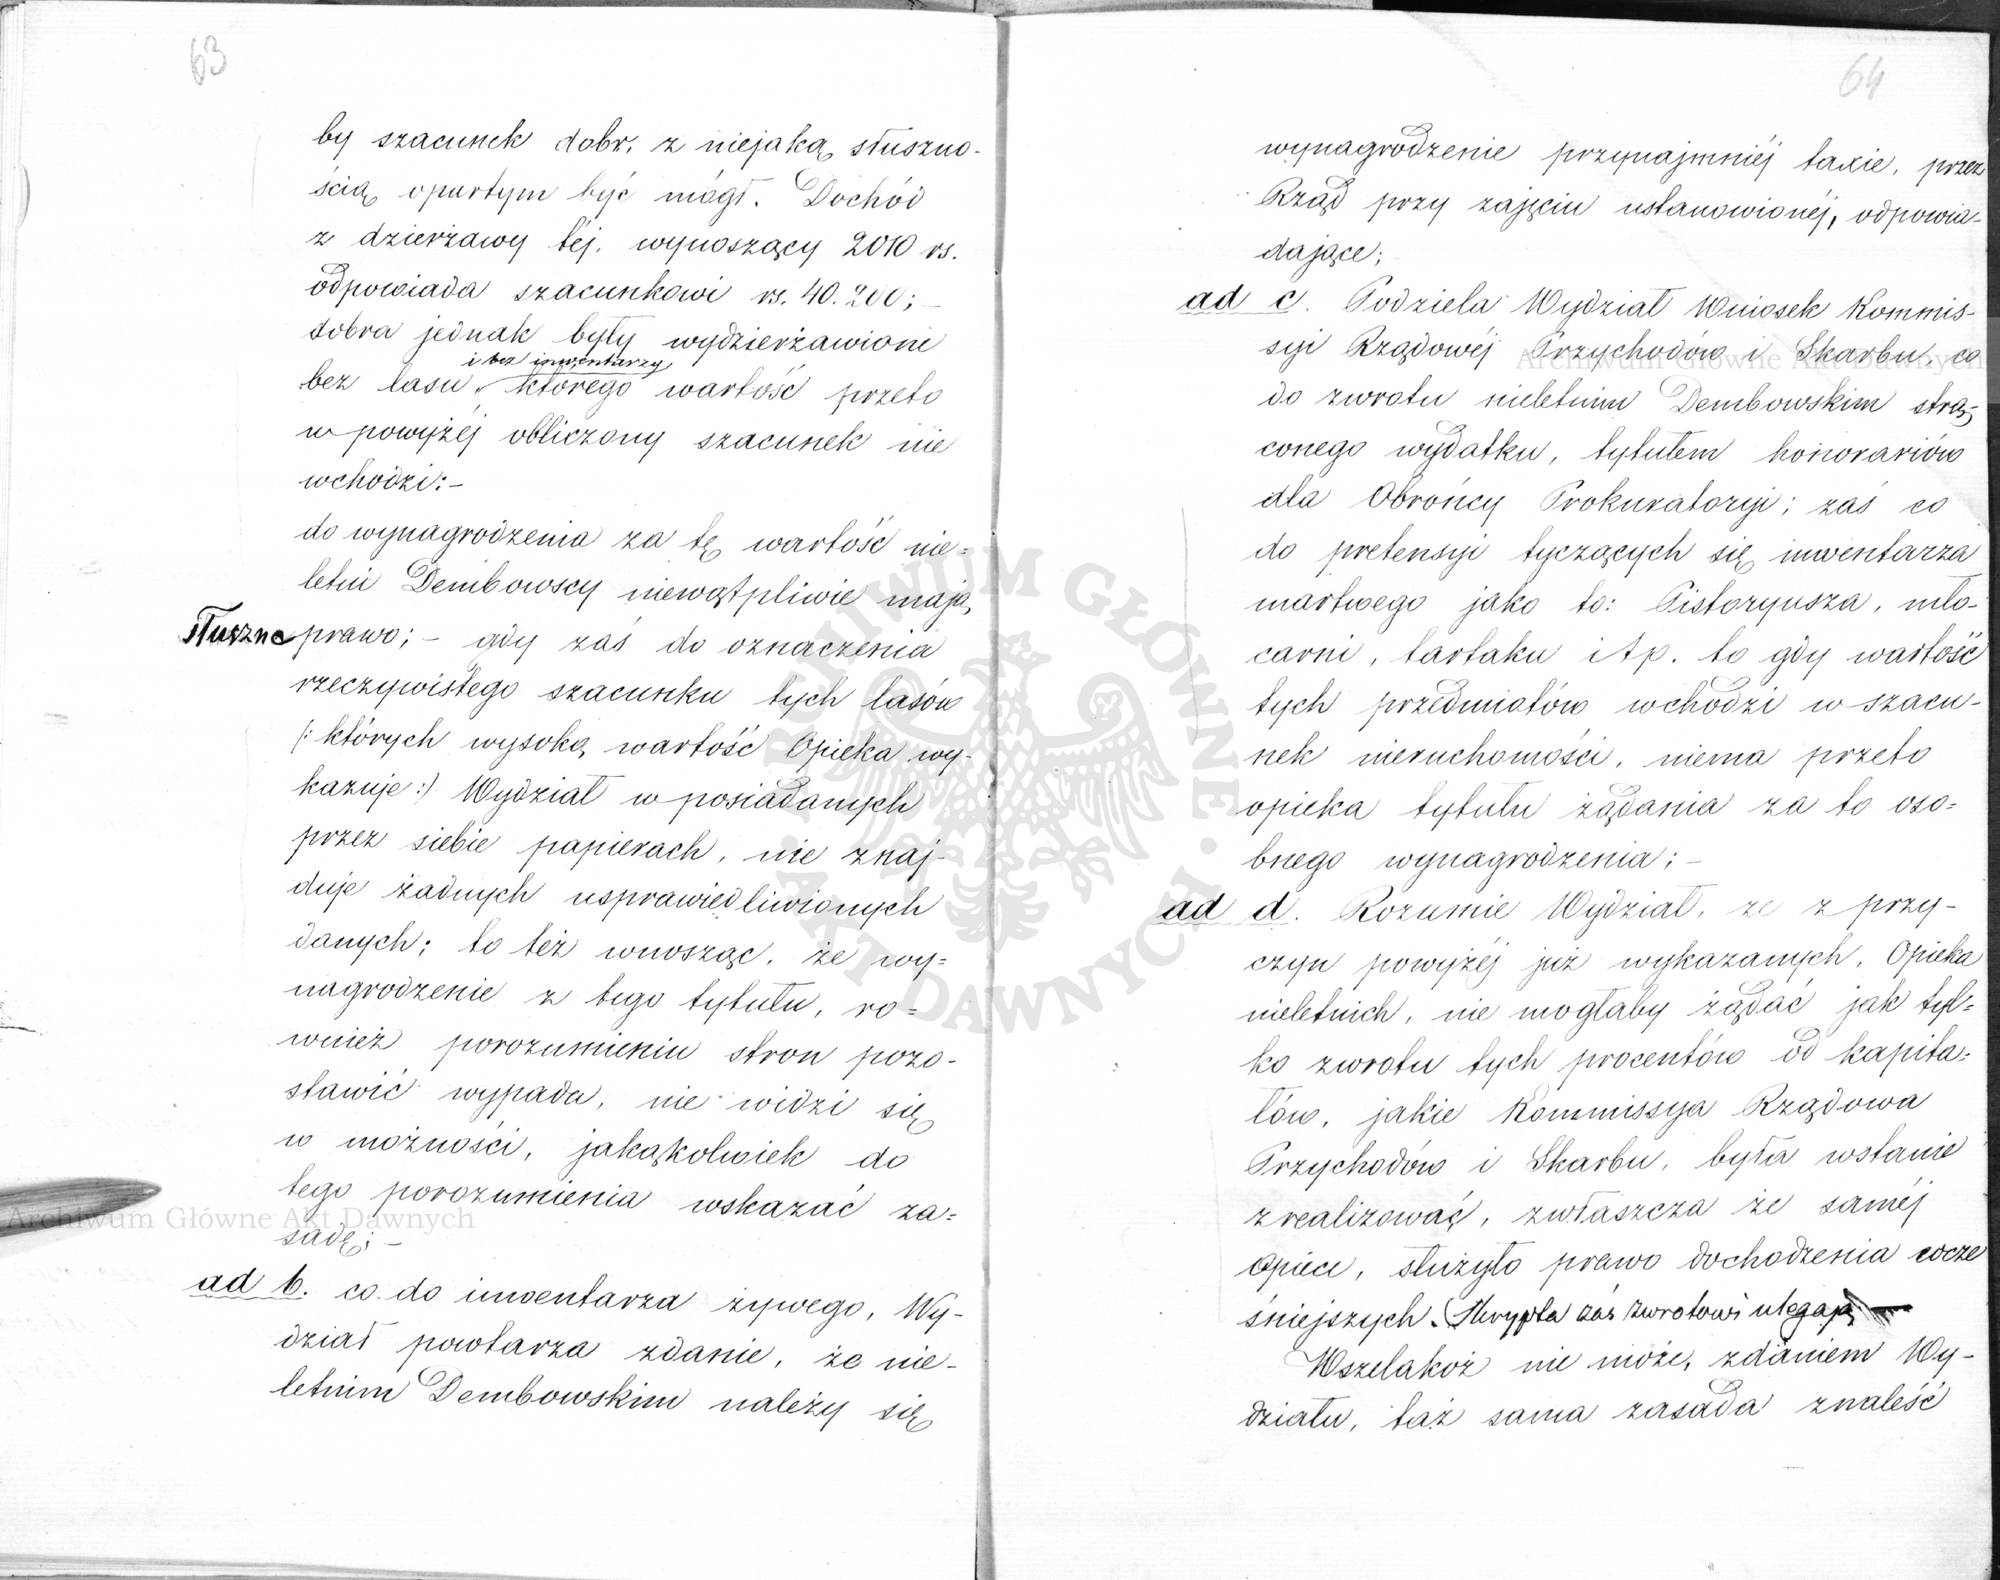 63
by szacunek dobr, z niejaką słuszno-
ścią opartym być mógł. Dochód
z dzierżawy téj, wynoszący 2010 rs.
odpowiada szacunkowi rs. 40.200; –
dobra jednak były wydzierżawione
i bez inwentarzy
bez lasu, którego wartość przeto
w powyżéj obliczony szacunek nie
wchodzi: –
do wynagrodzenia za tę wartość nie=
letni Dembowscy niewątpliwie mają
słuszne prawo; – gdy zaś do oznaczenia
rzeczywistego szacunku tych lasów
/: których wysoką wartość Opieka wy-
kazuje :/ Wydział w posiadanych
przez siebie papierach, nie znaj-
duje żadnych usprawiedliwionych
danych; to też wnosząc, że wy=
nagrodzenie z tego tytułu, ro=
wnież porozumieniu stron pozo-
stawić wypada, nie widzi się
w możności, jakąkolwiek do
tego porozumienia wskazać za=
sadę; –
ad b. co do inwentarza żywego, Wy-
dział powtarza zdanie, że nie-
letnim Dembowskim należy się
64
wynagrodzenie przynajmniéj taxie, przez
Rząd przy zajęciu ustanowionéj, odpowia-
dające;
ad c. Podziela Wydział Wniosek Kommis-
syi Rządowéj Przychodów i Skarbu, co
do zwrotu nieletnim Dembowskim strą-
conego wydatku, tytułem honorariów
dla Obrońcy Prokuratoryi; zaś co
do pretensyi tyczących się inwentarza
martwego jako to: Pistoryusza, mło-
carni, tartaku i t p. to gdy wartość
tych przedmiotów wchodzi w szacu-
nek nieruchomości, niema przeto
opieka tytułu żądania za to oso=
bnego wynagrodzenia; –
ad d. Rozumie Wydział, ze z przy-
czyn powyżéj już wykazanych, Opieka
nieletnich, nie mogłaby żądać jak tyl=
ko zwrotu tych procentów od kapita=
łów, jakie Kommissya Rządowa
Przychodów i Skarbu, była wstanie
zrealizować, zwłaszcza że saméj
Opiece, służyło prawo dochodzenia wcze
śniejszych. Skrypta zaś zwrotowi ulegają
Wszelakoż nie może, zdaniem Wy-
działu, taż sama zasada znaleść
Archiwum Główne Akt Dawnych
Archiwum Główne Akt Dawnych
ARCHIWUM GŁÓWNE · AKT DAWNYCH ·